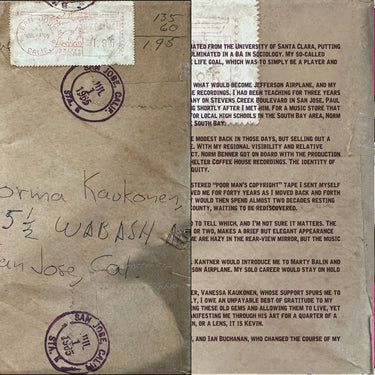 135
60
195
SAN JOSE, CALIF.
JUL
1
1965
STA.
orma Kaukonen,
5 ½ WABASH
an Jose, Cal.
SAN JOSE, CALIF.
JUL
1
1965
STA.
ATED FROM THE UNIVERSITY OF SANTA CLARA, PUTTING
LMINATED IN A BA IN SOCIOLOGY. MY SO-CALLED
E LIFE GOAL, WHICH WAS TO SIMPLY BE A PLAYER AND
WHAT WOULD BECOME JEFFERSON AIRPLANE, AND MY
E RECORDINGS. I HAD BEEN TEACHING FOR THREE YEARS
ANY ON STEVENS CREEK BOULEVARD IN SAN JOSE. PAUL
SHORTLY AFTER I MET HIM. FOR A MUSIC STORE THAT
FOR LOCAL HIGH SCHOOLS IN THE SOUTH BAY AREA, NORM
SOUTH BAY.
MODEST BACK IN THOSE DAYS, BUT SELLING OUT A
E. WITH MY REGIONAL VISIBILITY AND RELATIVE
JECT. NORM BENNER GOT ON BOARD WITH THE PRODUCTION
HELTER COFFEE HOUSE RECORDINGS. THE IDENTITY OF
QUITY.
STERED "POOR MAN'S COPYRIGHT" TAPE I SENT MYSELF
ED ME FOR FORTY YEARS AS I MOVED BACK AND FORTH
Y WOULD THEN SPEND ALMOST TWO DECADES RESTING
OUNTY, WAITING TO BE REDISCOVERED.
TO TELL WHICH, AND I'M NOT SURE IT MATTERS. THE
OR TWO, MAKES A BRIEF BUT ELEGANT APPEARANCE
ME ARE HAZY IN THE REAR-VIEW MIRROR, BUT THE MUSIC
KANTNER WOULD INTRODUCE ME TO MARTY BALIN AND
RSON AIRPLANE. MY SOLO CAREER WOULD STAY ON HOLD
ER, VANESSA KAUKONEN, WHOSE SUPPORT SPURS ME TO
LY, I OWE AN UNPAYABLE DEBT OF GRATITUDE TO MY
NG THESE OLD GEMS AND ALLOWING THEM TO LIVE, YET
ANIFESTING ME THROUGH HIS ART FOR A QUARTER OF A
N, OR A LENS, IT IS KEVIN.
, AND IAN BUCHANAN, WHO CHANGED THE COURSE OF MY